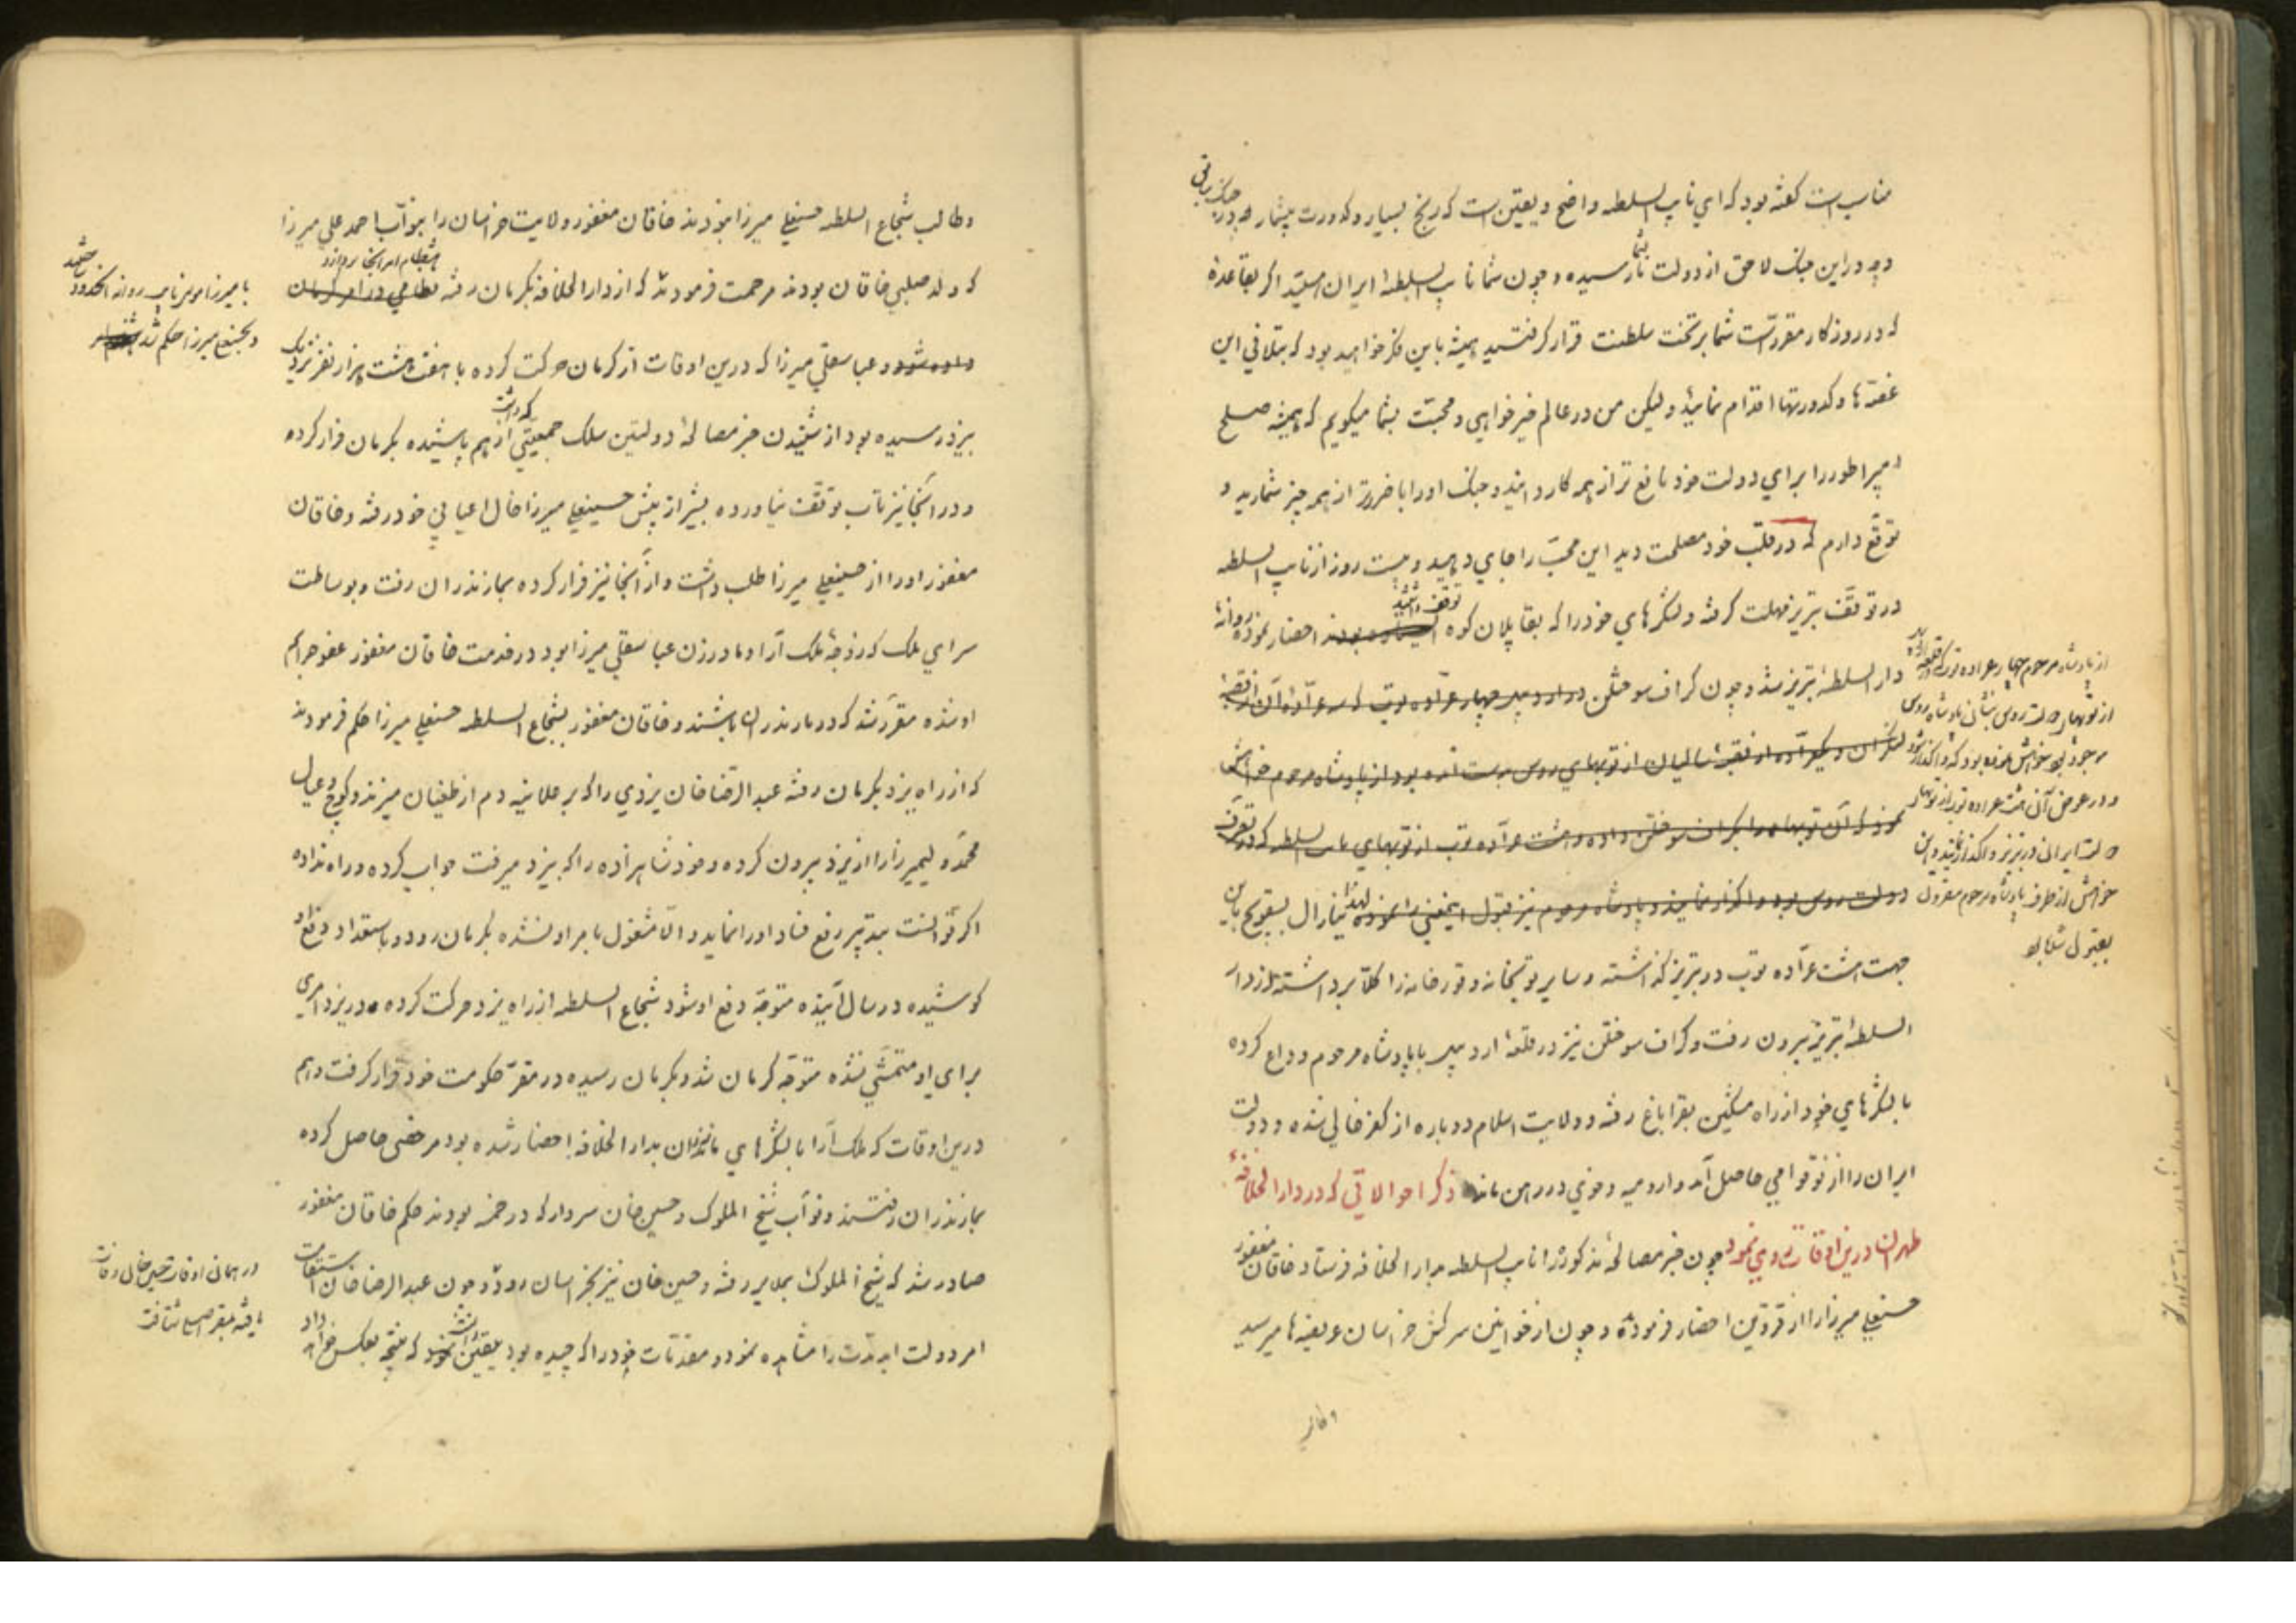 مناسب است گفته بود که ای نایب السلطنه واضح و یقین است که رنج بسیار و کدورت بیشمار چه در جنک سابق
و چه در این جنک لاحق از دولت ما بشما رسیده و چون شما نایب السلطنهٔ ایران هستید اگر بقاعدهٔ
که در روزگار مقرر است شما بر تخت سلطنت قرار گرفتید همیشه باین فکر خواهید بود که بتلافی این
غصّه‌ها و کدورتها اقدام نمائید ولیکن من در عالم خیرخواهی و محبّت بشما میگویم که همیشه صلح
امپراطور را برای دولت خود نافع‌تر از همه کار دانید و جنک او را با ضررتر از همه چیز شمارید و
توقّع دارم که در قلب خود مصلحت دید این محبّ را جای دهید و بیست روز از نایب السلطنه
در توقّف تبریز مهلت گرفته و لشکرهای خود را که بقاپلان کوه توقف داشتند احضار نموده روانهٔ
دار السلطنهٔ تبریز شد و چون گراف سوختلن در اردبیل چهار عرّاده توپ که سه عرّادهٔ آن از قبضهٔ
لنکران و یکعرّاده از قبضهٔ سالیان از توپهای روس بدست آمده بود از پادشاه مرحوم خواهش
نمود که آن توپها را بگراف سوختلن داده و هشت عرّاده توپ از توپهای نایب السلطنه که در تصرّف
دولت روس بود واگذار نمایند و پادشاه مرحوم نیز قبول اینمعنی را نموده لهذا ینارال بسقویچ باین
جهت هشت عرّاده توپ در تبریز گذاشته و سایر توپخانه و قورخانه را کلاّ برداشته از دار
السلطنهٔ تبریز بیرون رفت و گراف سوختلن نیز در قلعهٔ اردبیل با پادشاه مرحوم وداع کرده
با لشکرهای خود از راه مشکین بقراباغ رفته و ولایت اسلام دوباره از کفر خالی شده و دولت
ایران را از نو قوامی حاصل آمد و ارومیه و خوی در رهن ماند ذکر احوالاتی که در دار الخلافهٔ
طهران درین اوقات روی نمود چون خبر مصالحهٔ مذکور را نایب السلطنه بدار الخلافه فرستاد خاقان مغفور
حسنعلی میرزا را از قزوین احضار فرموده و چون از خوانین سرکش خراسان عریضه‌ها میرسید
وطالب
از پادشاه مرحوم چهار عراده توپ که در قلعهٔ اردبیل
از توپهای دولت روس بنشان پادشاه روس
موجود بود خواهش نموده بود که واگذار شود
و در عوض آن هشت عراده توپ از توپهای
دولت ایران در تبریز واگذارند و این
خواهش از طرف پادشاه مرحوم مقرون
بقبول شده بود
و طالب شجاع السلطنه حسنعلی میرزا بودند خاقان مغفور ولایت خراسان را بنوّاب احمد علی میرزا
که ولد صلبی خاقان بودند مرحمت فرمودند که از دار الخلافه بکرمان رفته نظامی در امر کرمان
بانتظام امر آنجا پردازد
با میرزا موسی نایب روانه آنحدود ساختند
و بحسنعلی میرزا حکم شد
داده شود و عباسقلی میرزا که درین اوقات از کرمان حرکت کرده با هفت هشت هزار نفر نزدیک
بیزد رسیده بود از شنیدن خبر مصالحهٔ دولتین سلک جمعیّتی که داشت از هم پاشیده بکرمان فرار کرده
و در آنجا نیز تاب توقّف نیاورده بشیراز پیش حسینعلی میرزا خال اعیانی خود رفته و خاقان
مغفور او را از حسینعلی میرزا طلب داشت و از آنجا نیز فرار کرده بمازندران رفت و بوساطت
سرای ملک که زوجهٔ ملک آرا و مادر زن عباسقلی میرزا بود در خدمت خاقان مغفور عفو جرایم
او شده مقرّر شد که در مازندران باشند و خاقان مغفور بشجاع السلطنه حسنعلی میرزا حکم فرمودند
که از راه یزد بکرمان رفته عبد الرّضا خان یزدی را که بر علانیه دم از طغیان میزند و کوچ و عیال
محمّد ولیمیرزا را از یزد بیرون کرده و خود شاهزاده را که بیزد میرفت جواب کرده و راه نداده
اگر توانست بتدبیر رفع فساد او را نماید و الّا مشغول بامر او نشده بکرمان رود و باستعداد دفع او
کوشیده در سال آینده متوجّه دفع او شود شجاع السلطنه از راه یزد حرکت کرده و در یزد امری
برای او متمشّی نشده متوجّه کرمان شد و بکرمان رسیده در مقرّ حکومت خود قرار گرفت و هم
درین اوقات که ملک آرا با لشکرهای مازندران بدار الخلافه احضار شده بود مرخصی حاصل کرده
بمازندران رفتند و نوّاب شیخ الملوک و حسین خان سردار که در خمسه بودند حکم خاقان مغفور
صادر شد که شیخ الملوک بملایر رفته و حسین خان نیز بخراسان رود و چون عبد الرضا خان استقامت
امر دولت ابد مدّت را مشاهده نمود و مقدّمات خود را که چیده بود یقین دانست که نتیجه بعکس خواهد داد
در همان اوقات حسین خان وفات
یافته بمقر اصلی شتافت